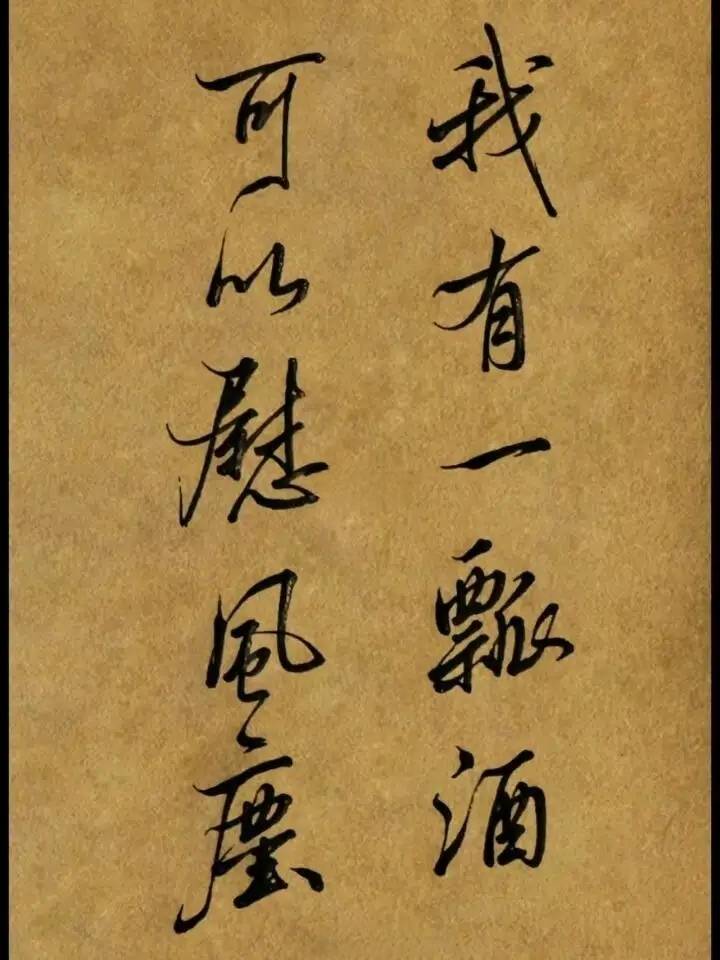 我有一瓢酒
可以慰風塵